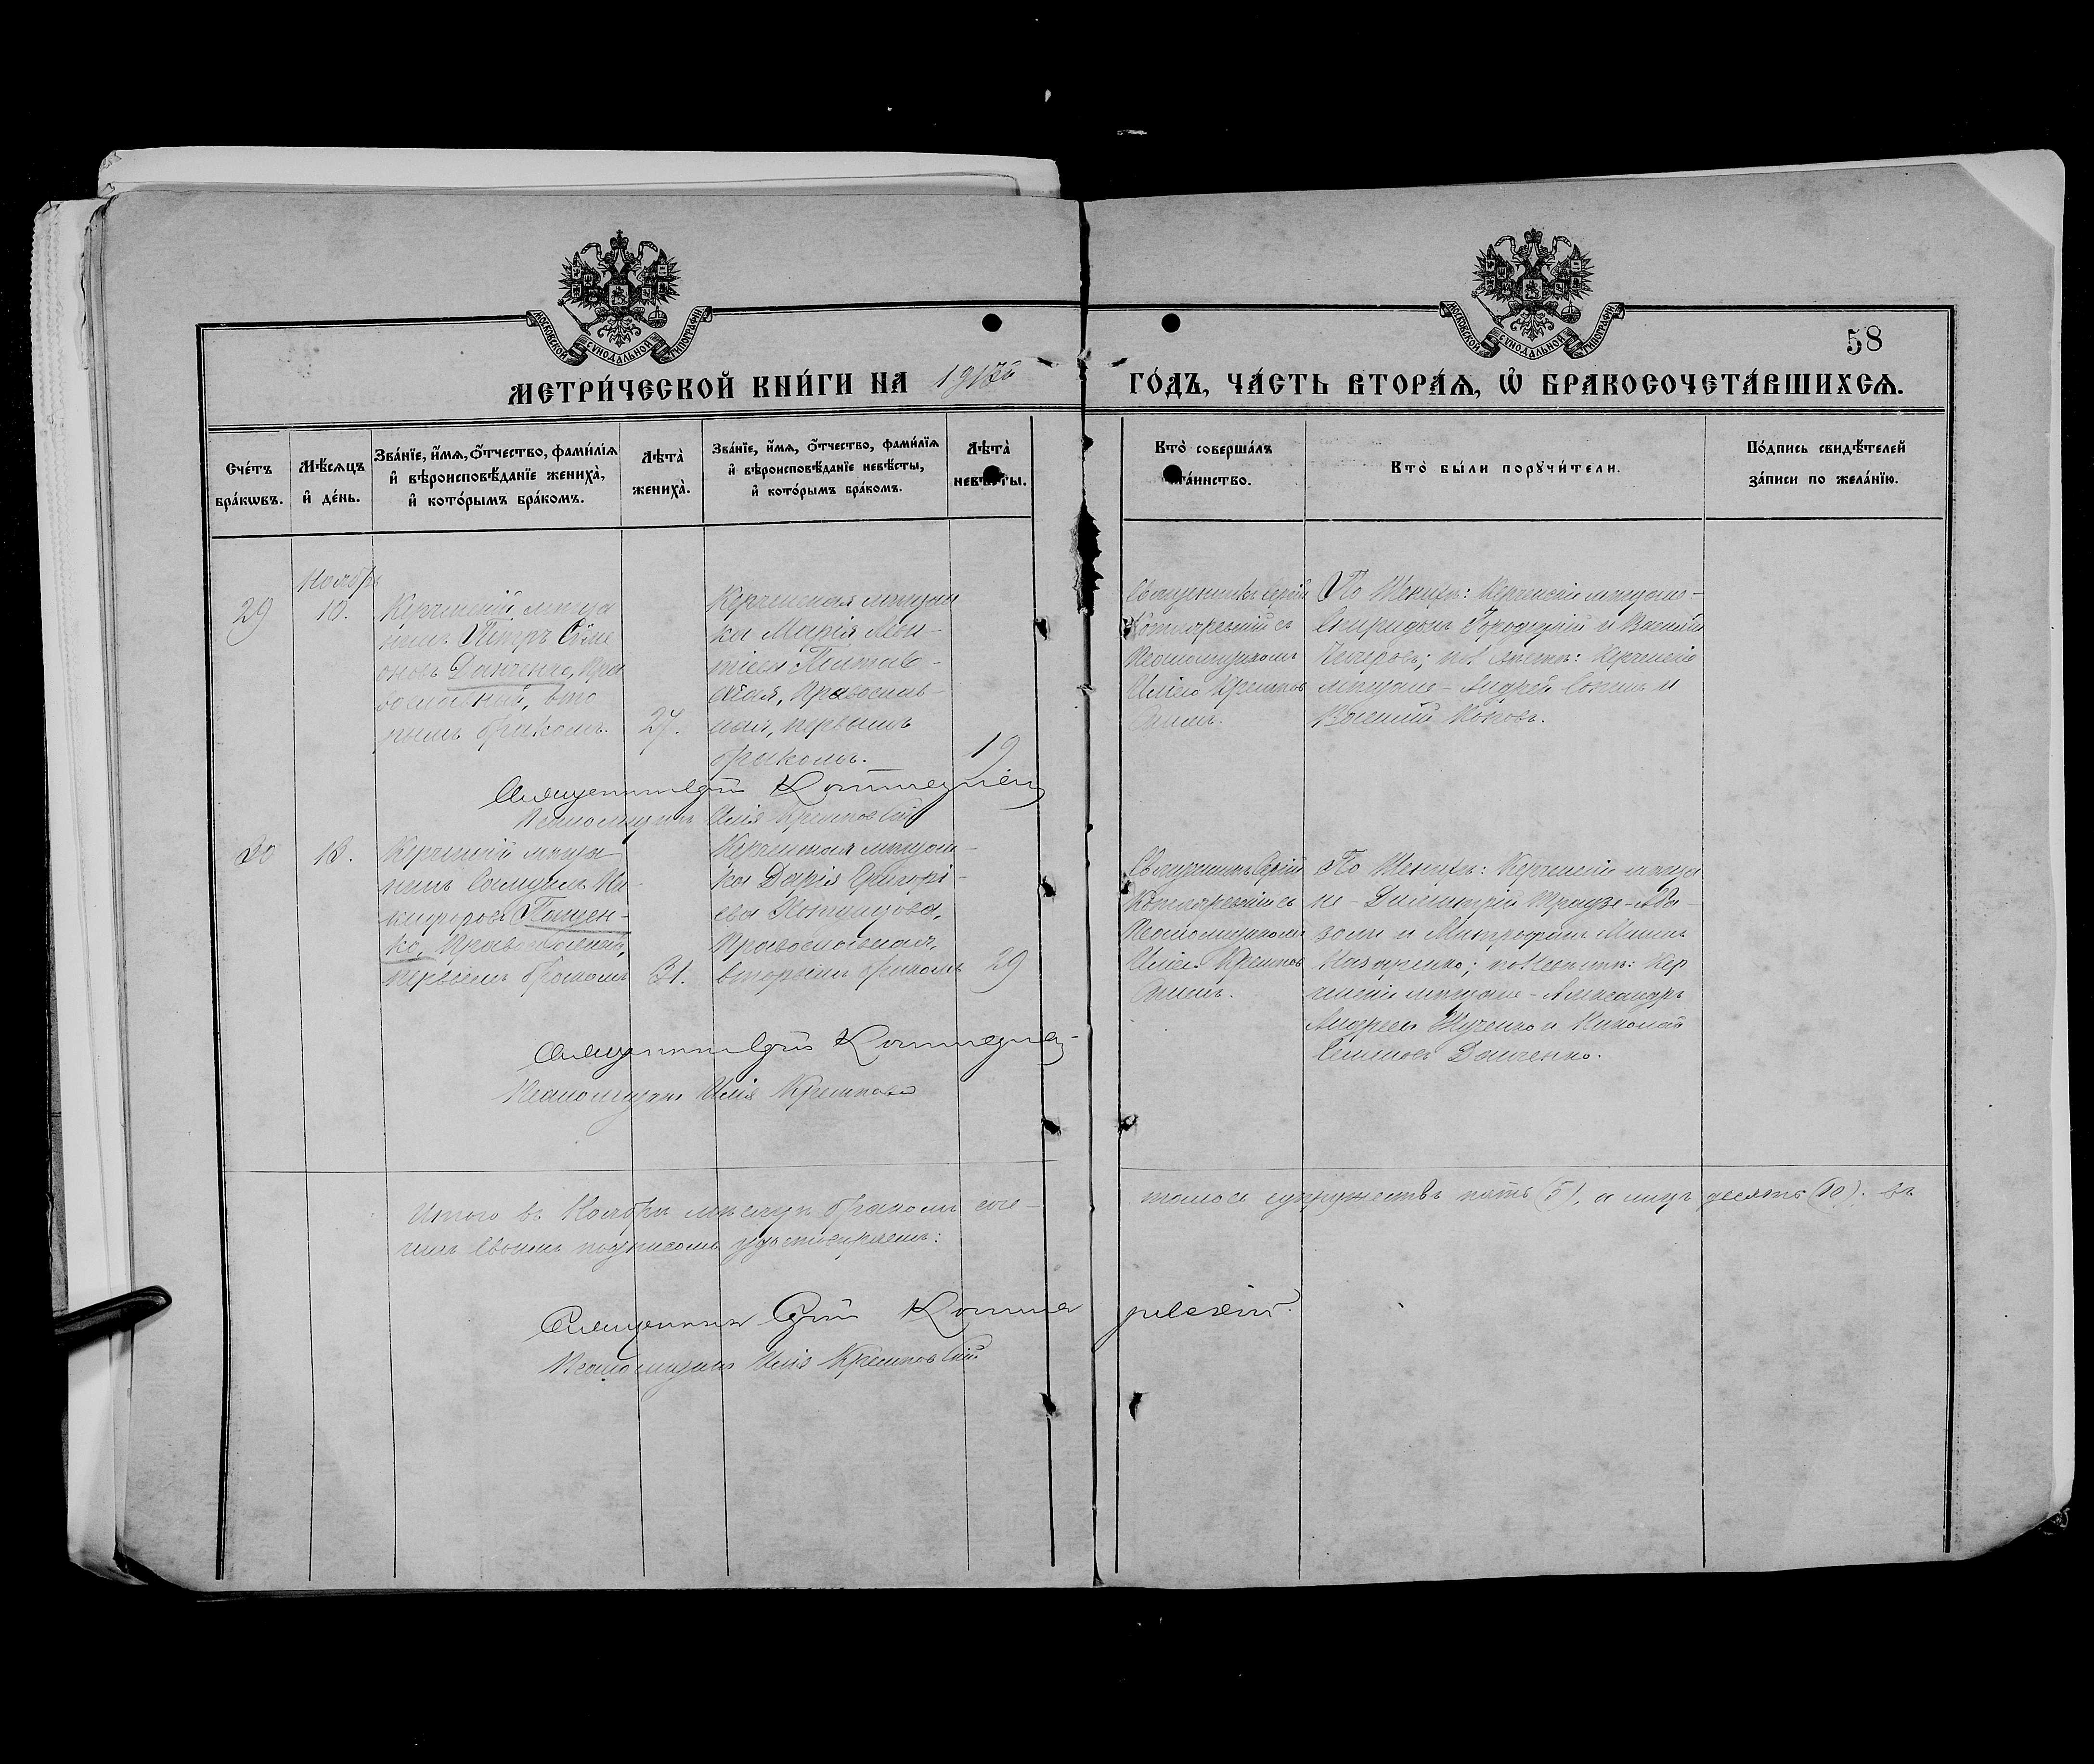 МОСКОВСКОЙ СУНОДАЛЬНОЙ ТИПОГРАФІИ
МОСКОВСКОЙ СУНОДАЛЬНОЙ ТИПОГРАФІИ
58
МЕТРИ́ЧЕСКОЙ КНИ́ГИ НА
ГО́ДЪ, ЧА́СТЬ ВТОРА́Я, Ѡ БРАКОСОЧЕТА́ВШИХСЯ.
Сче́тъ бра́кѡвъ.
Мѣ́сяцъ и де́нь.
Зва́нїе, и́мя, о́тчество, фами́лїя
и вѣроисповѣ́данїе жениха̀,
и кото́рымъ бра́комъ.
Лѣта̀ жениха̀.
Зва́нїе, и́мя, о́тчество, фами́лїя
и вѣроисповѣ́данїе невѣ́сты,
и кото́рымъ бра́комъ.
Лѣта̀ невѣ́сты.
Кто̀ соверша́лъ
та́инство.
Кто̀ бы́ли порꙋчи́тели.
По́дпись свидѣ́телей
за́писи по жела́нїю.
Ноября
29
10.
Керченскій мѣща
нинъ Петръ Симе
оновъ Данченко, пра
вославный, вто
рымъ бракомъ.
27.
Керченская мѣщан
ка Марія
православ-
ная, первымъ
бракомъ.
19
Священникъ Сергій
Котляревскій съ
Псаломщикомъ
Иліею Крешков
скимъ.
По Женихѣ: Керченскіе мѣщане -
Спиридонъ Городецкій и Василій
по невѣстѣ: Керченскіе
мѣщане - Андрей и
Василій
Священникъ Сергій Котляревскій
Псаломщикъ Илія Крешковскій
30
13.
Керченскій мѣща
нинъ Самуилъ Ни-
кифоровъ Пащен-
ко, православный,
первымъ бракомъ
31.
Керченская мѣщан-
ка Дарія Григорі-
ева
православная,
вторымъ бракомъ
29
Священникъ Сергій
Котляревскій съ
Псаломщикомъ
Иліею Крешков
скимъ.
По Женихѣ: Керченскіе мѣща
не - Димитрій
и Митрофанъ
Назаренко; по Невѣстѣ: Кер
ченскіе мѣщане - Александръ
Андреевъ и Николай
Симеоновъ Данченко.
Священникъ Сергій Котляревскій
Псаломщикъ Илія Крешковскій
Итого въ Ноябрѣ мѣсяцѣ бракомъ соче-
талось супружествъ пять (5), а лицъ десять (10); въ
чемъ своимъ подписомъ удостовѣряемъ:
Священникъ Сергій Котляревскій.
Псаломщикъ Илія Крешковскій